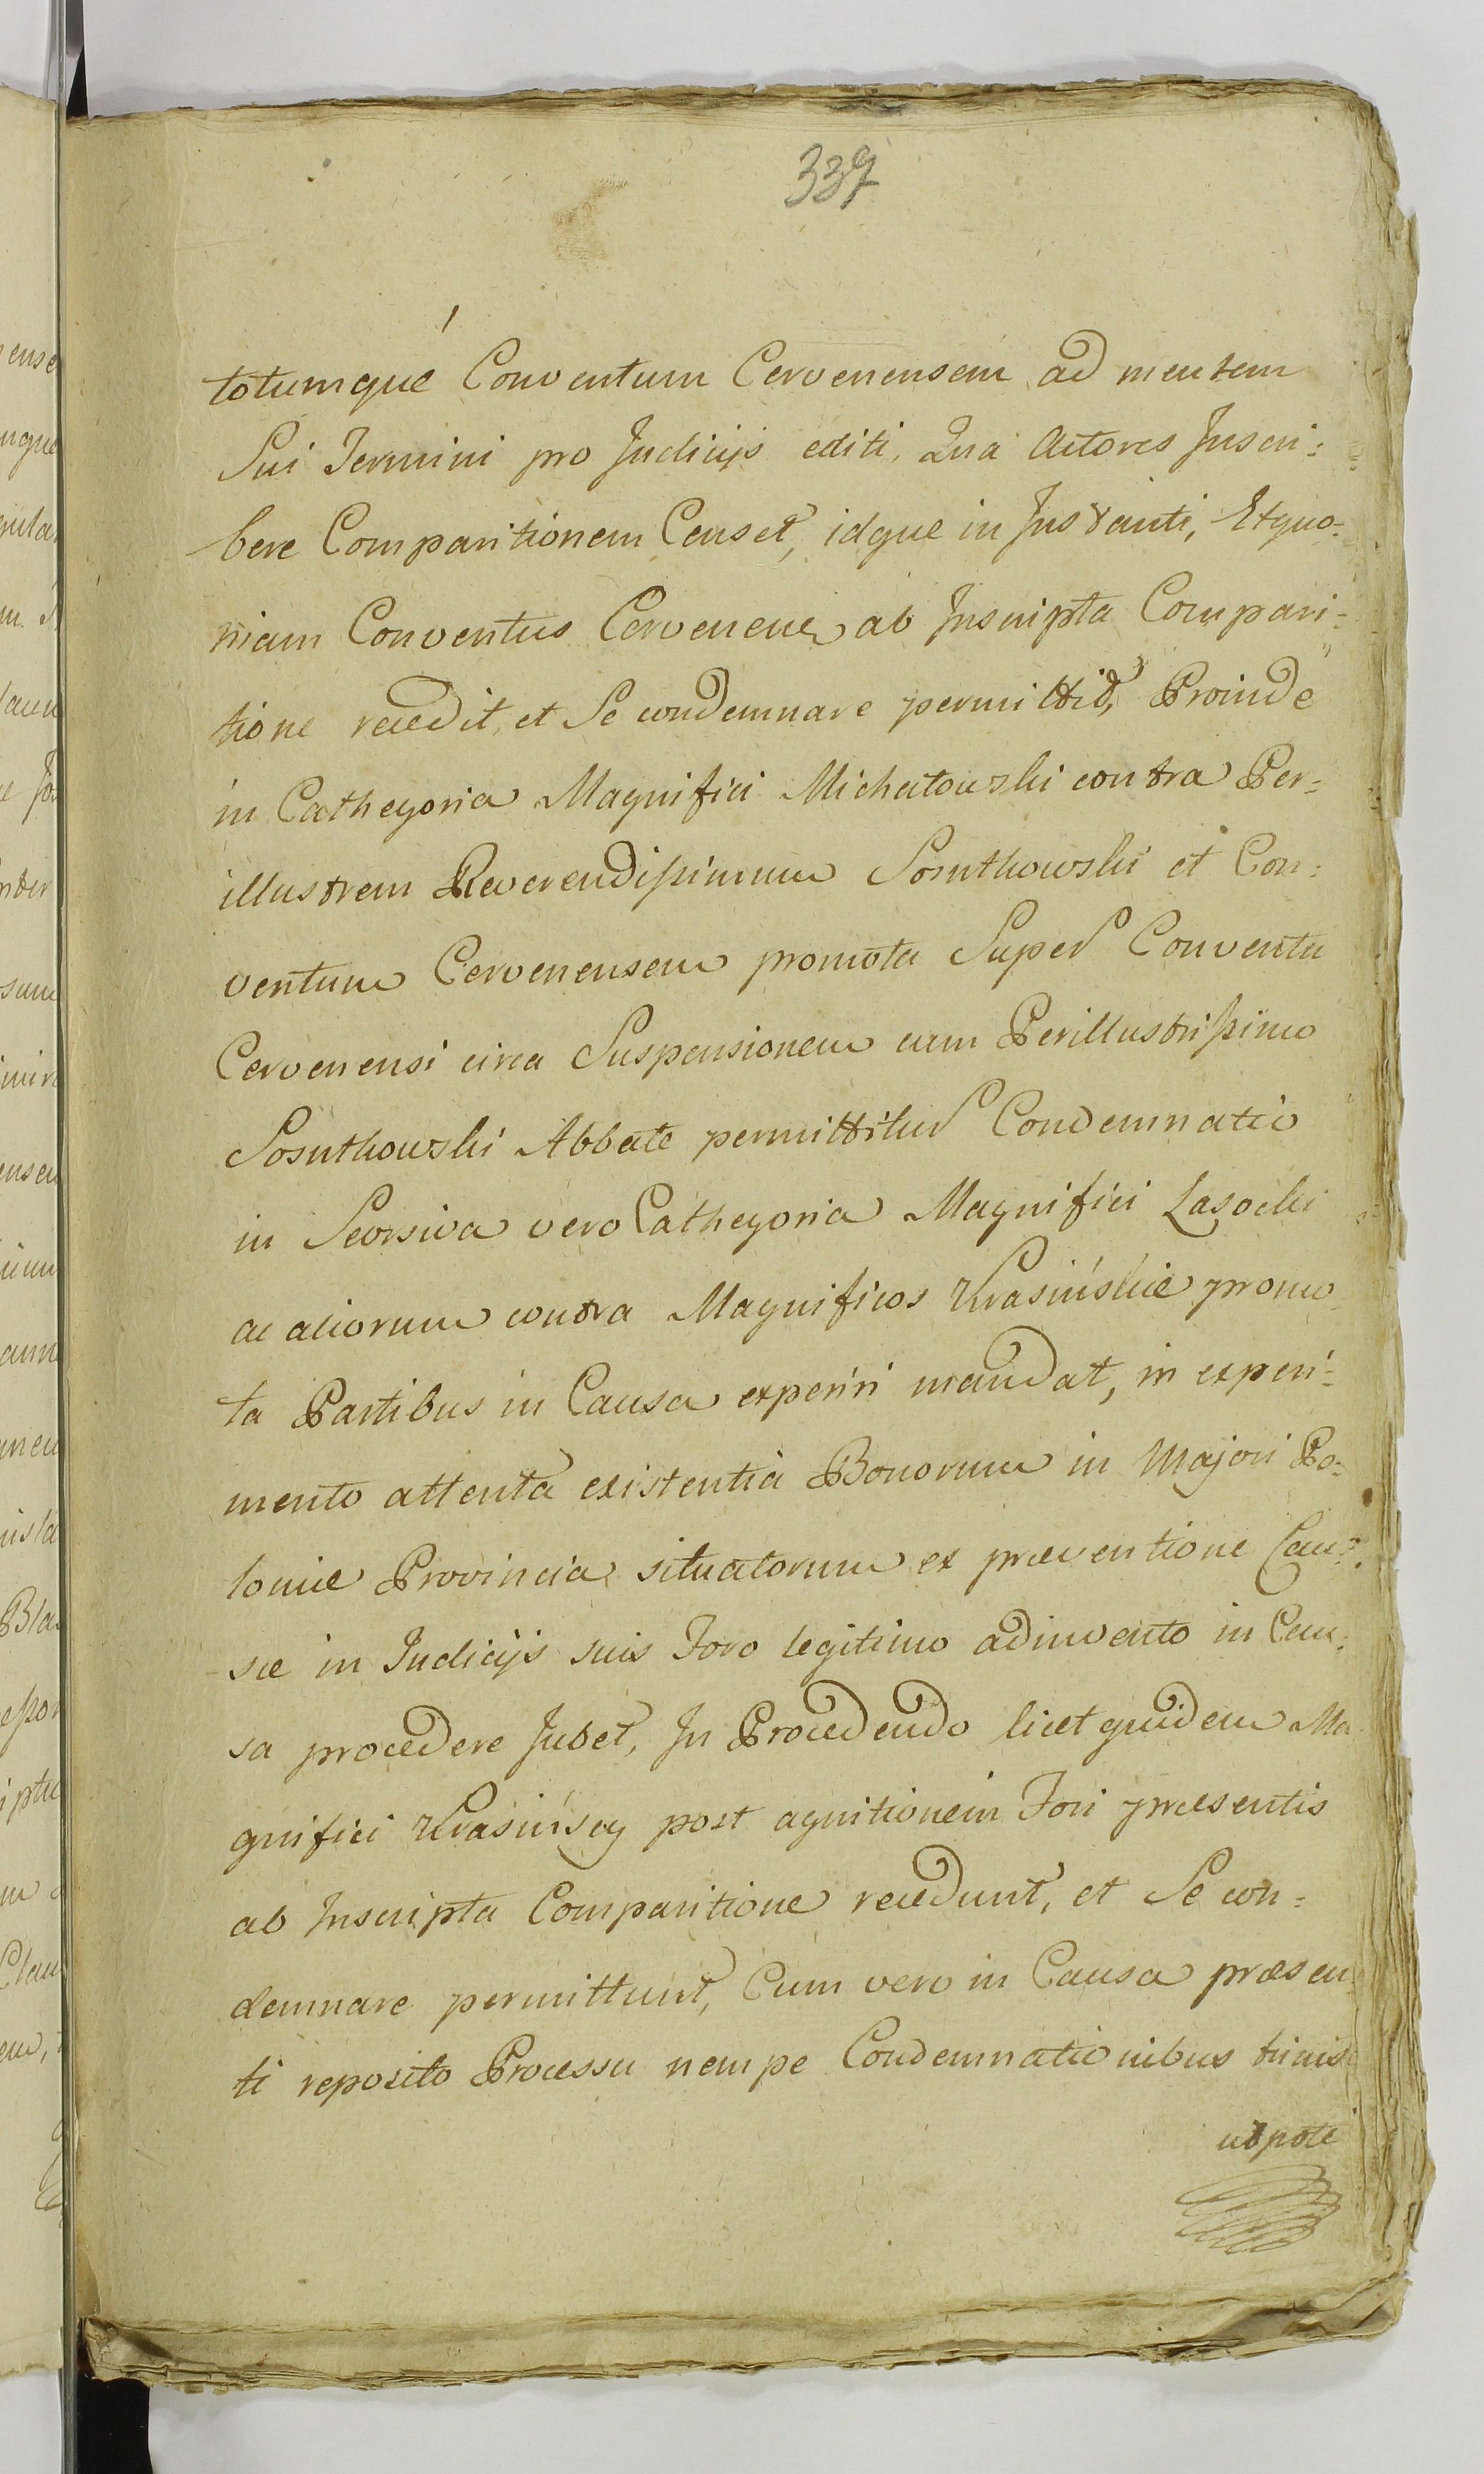 337
totumque Conventum Cervenensem ad mentem
Sui Termini pro Judicijs editi, Qua Actores Inscri:
bere Comparitionem Censet, idque in Instanti, Etquo-
niam Conventus Cervenen ab Inscripta Compari-
tione recedit, et Se condemnare permittit, Proinde
in Cathegoria Magnifici Michałowski contra Per-
illustrem Reverendissimum et Con:
ventum Cervenensem promota Super Conventu
Cervenensi circa Suspensionem cum Perillustrissimo
Abbate permittitur Condemnatio
in Seorsiva vero Cathegoria Magnifici Lasocki
ac aliorum contra Magnificos Krasińskie promo
ta Partibus in Causa experiri mandat, in experi-
mento attenta existentia Bonorum in Majori Po-
loniæ Provincia situatorum ex præventione Cau-
sæ in Judicijs suis Foro legitimo adinvento in Cau:
sa procedere Jubet, In Procedendo licet quidem Ma
gnifici Krasińscy post agnitionem Fori præsentis
ab Inscripta Comparitione recedunt, et Se con=
demnare permittunt, Cum vero in Causa præsen
ti reposito Processu nempe Condemnationibus trinis
utpote